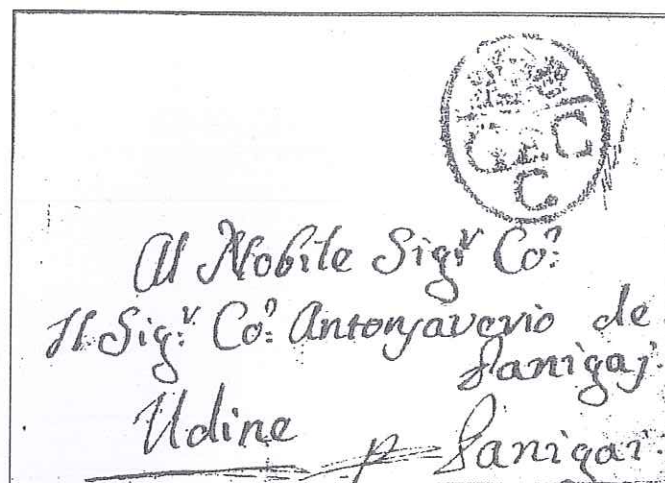 C C
C
Al Nobile Sig.r Co:
Il Sig.r Co: Antonsaverio de
Panigaj.
Udine p Panigai.